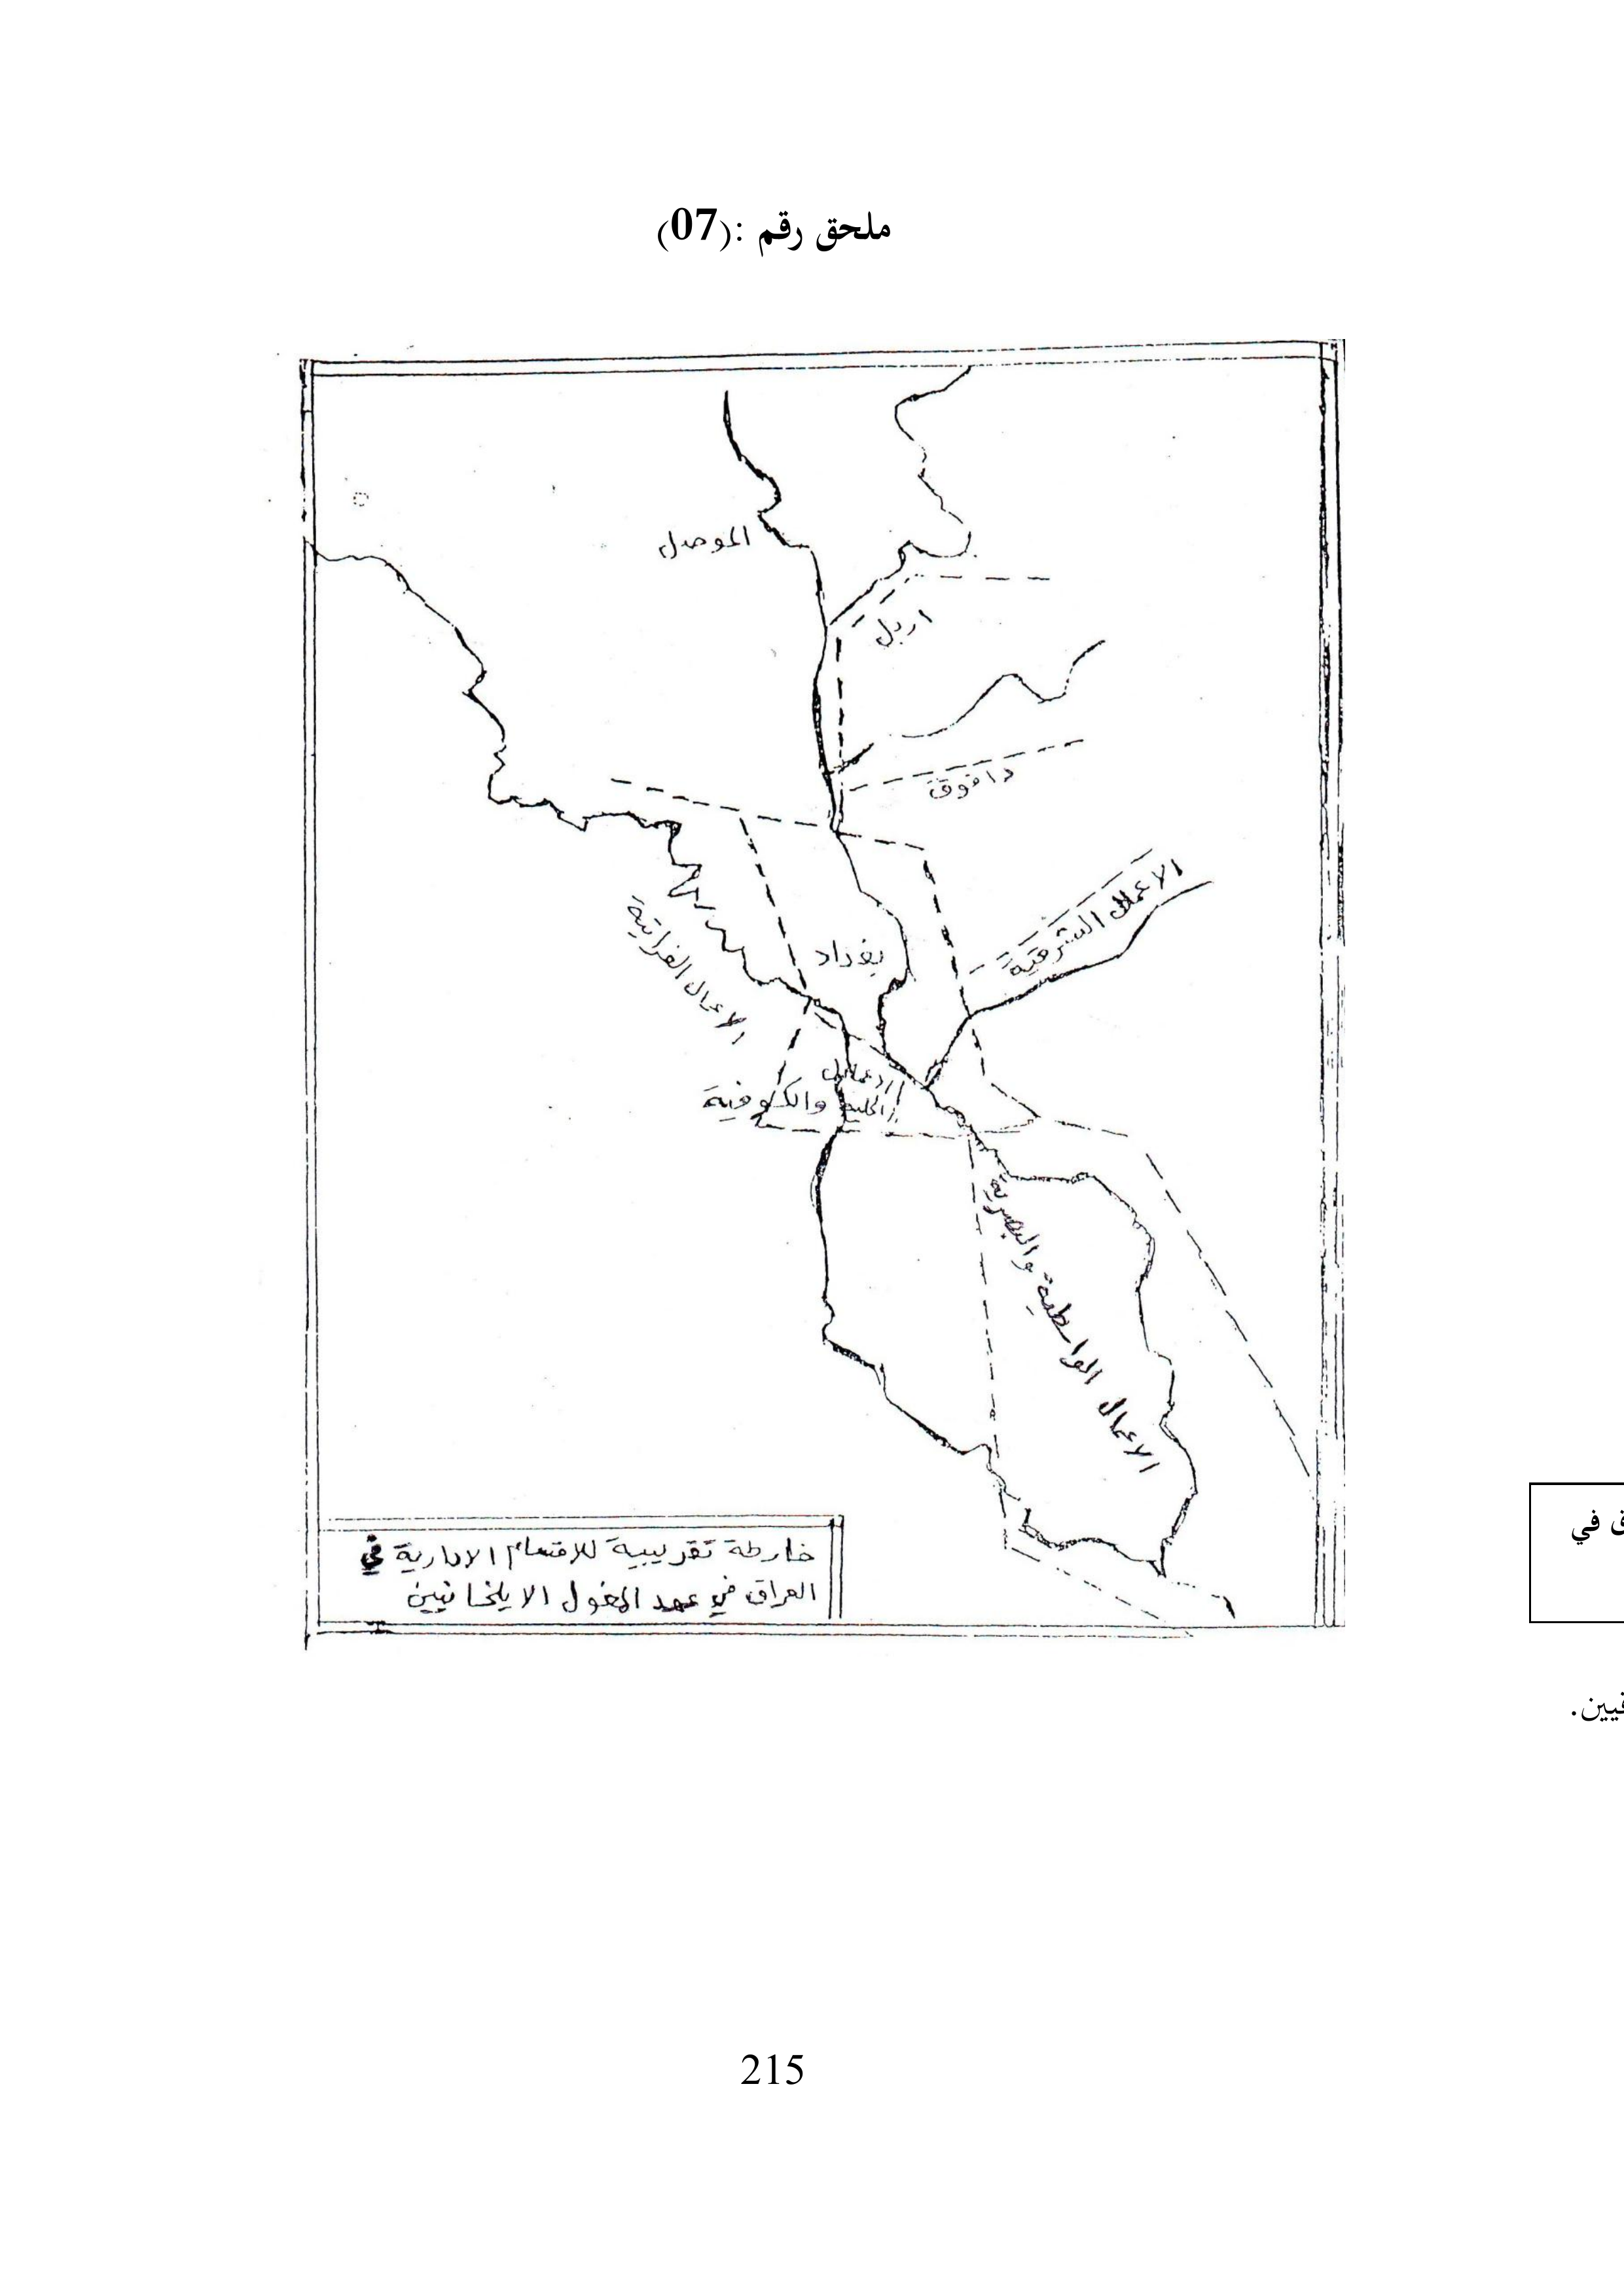 ملحق رقم :(07)
الموصل
اربل
داقوق
الاعمال الشرقية
بغداد
الاعمال الفراتية
الاعمال
الحلية والكوفية
الاعمال الواسطية والبصرية
خارطة تقريبية للاقسام الادارية في
العراق في عهد المغول الايلخانيين
في
215